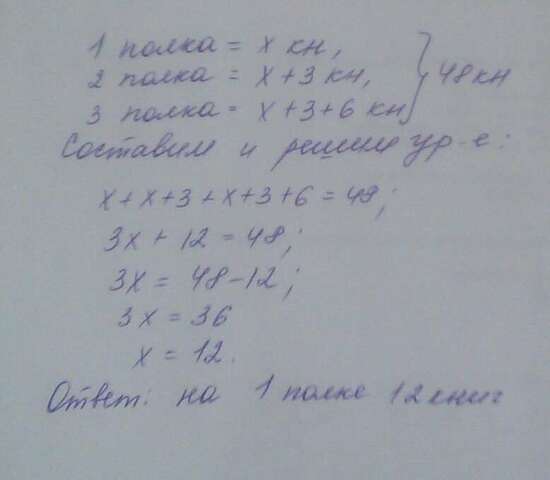 1 полка = x кн,
2 полка = x + 3 кн, } 48 кн
3 полка = x + 3 + 6 кн
Составим и решим ур-е:
x + x + 3 + x + 3 + 6 = 48;
3x + 12 = 48;
3x = 48 - 12;
3x = 36
x = 12.
Ответ: на 1 полке 12 книг